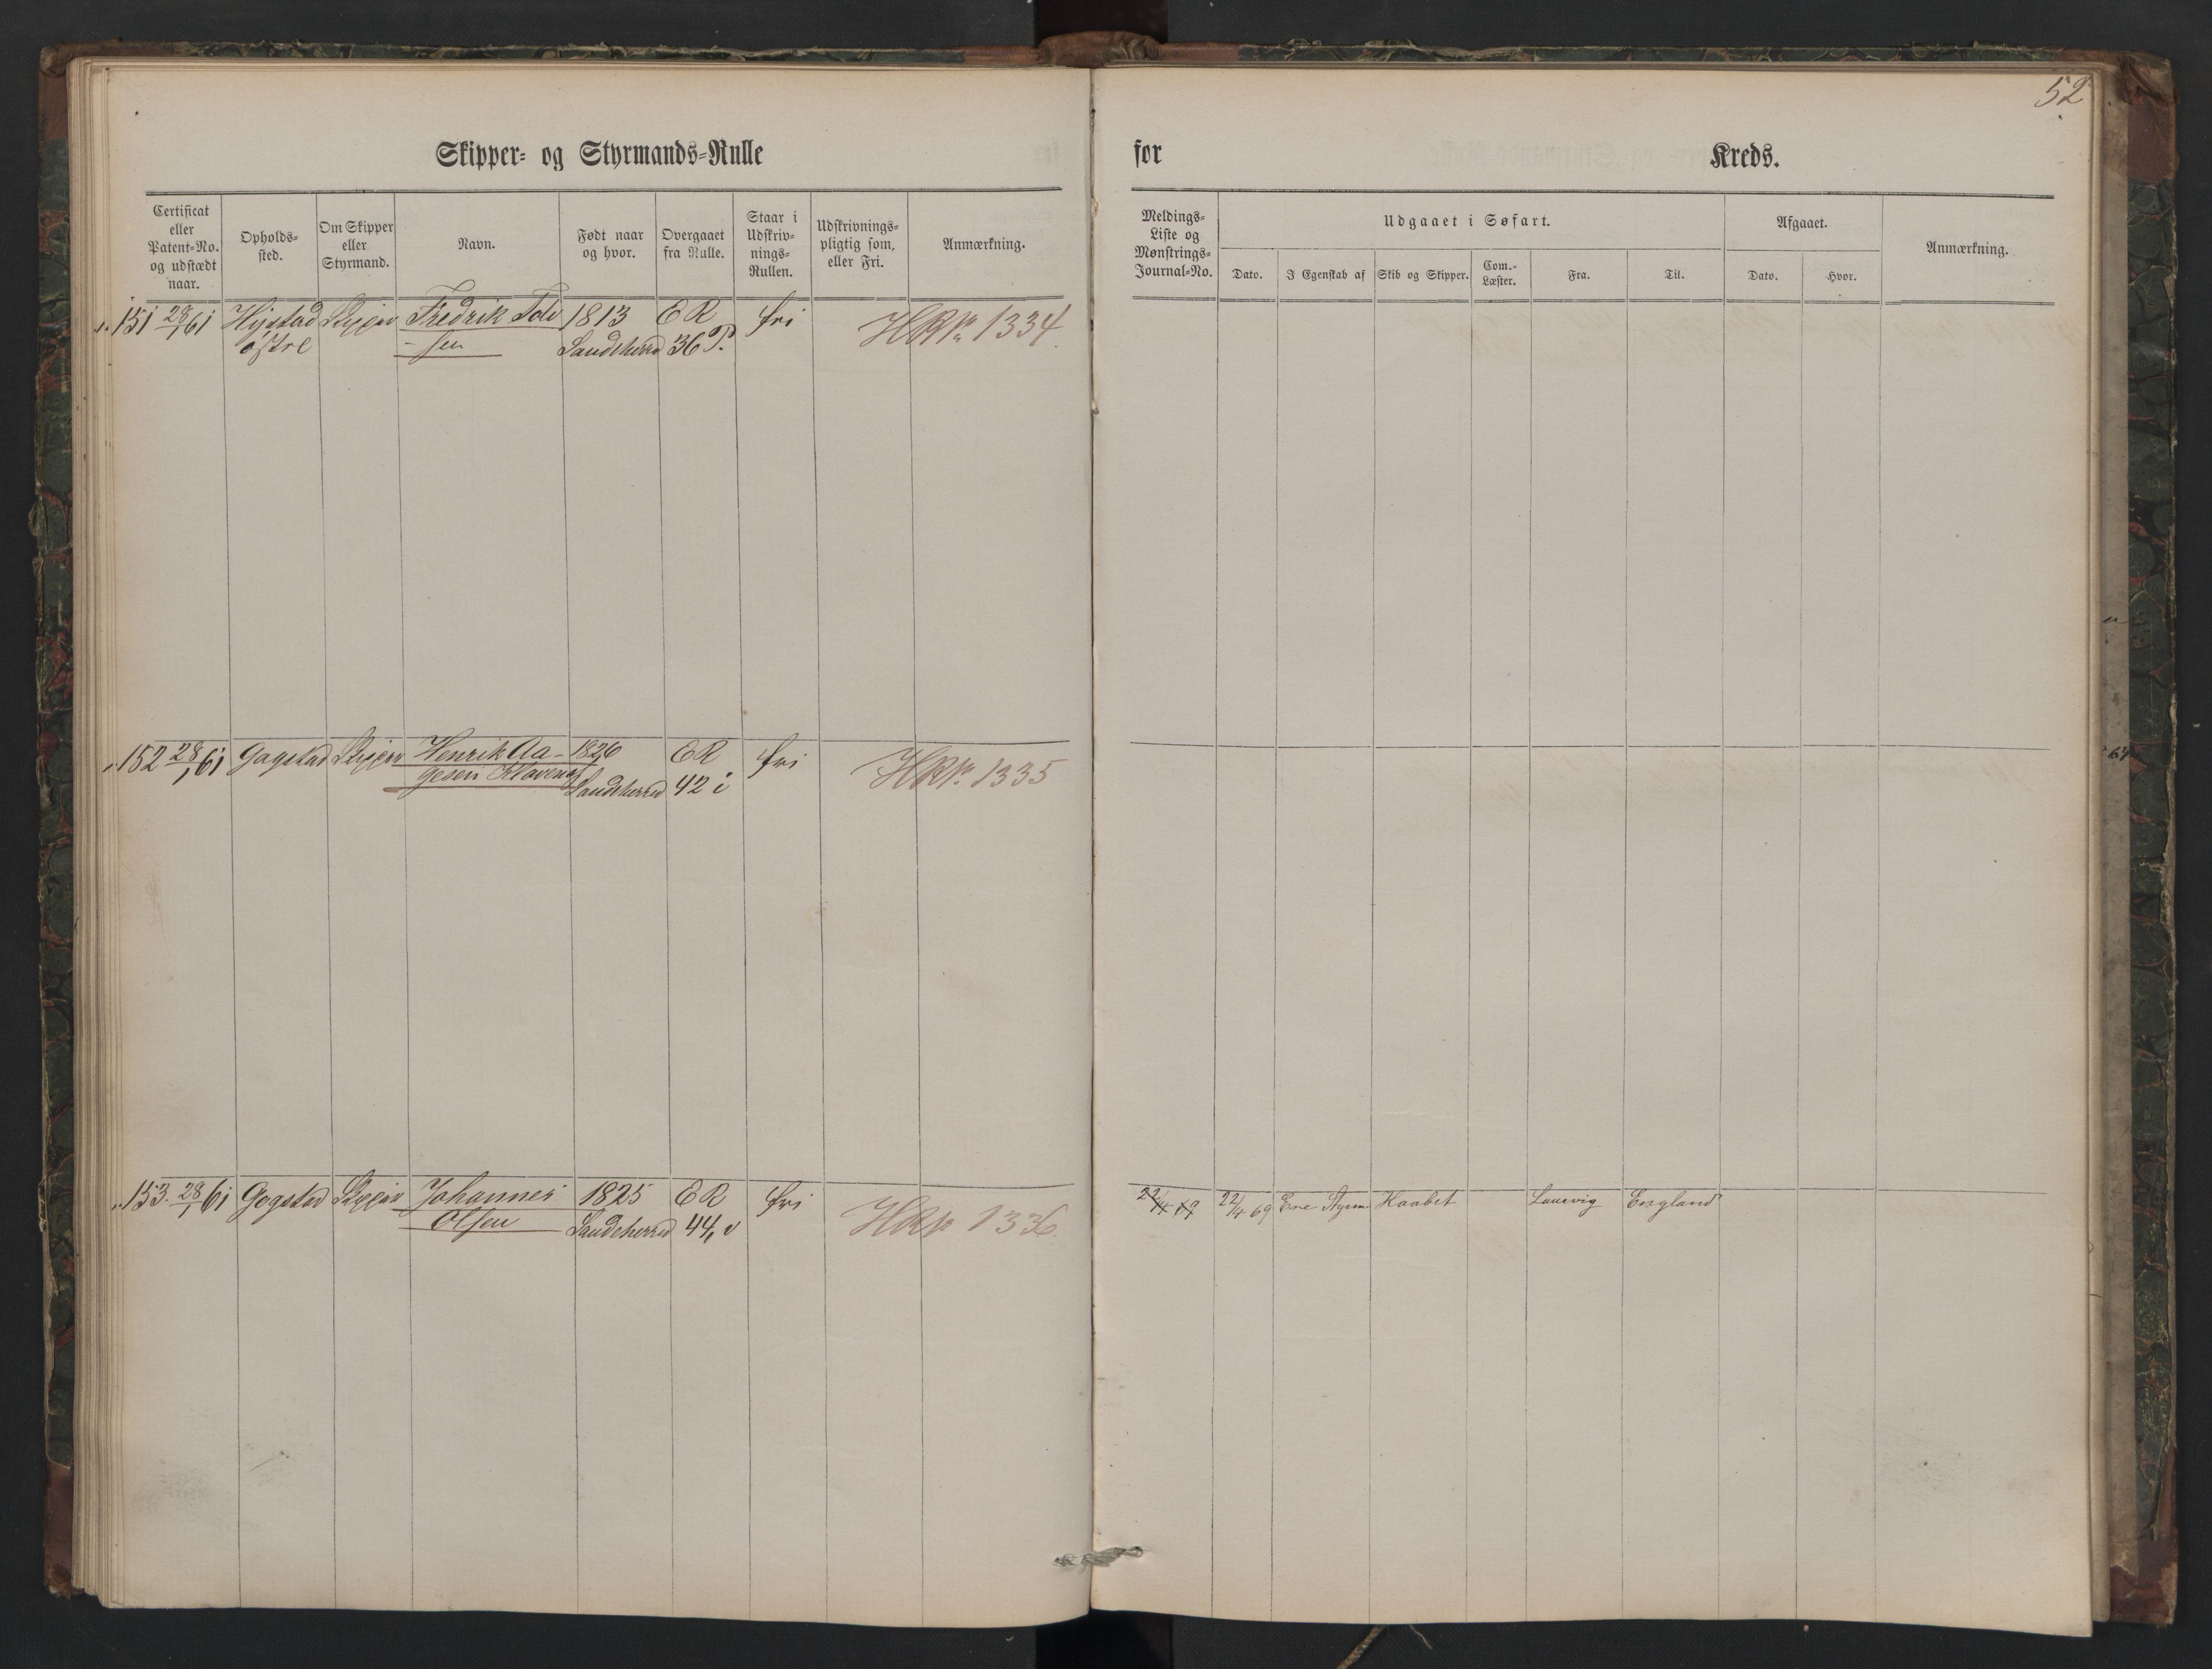 52
Skipper- og Styrmands-Rulle
for Kreds.
Certificat eller Patent-No. og udstædt naar.
Opholds- sted.
Om Skipper eller Styrmand.
Navn.
Født naar og hvor.
Overgaaet fra Rulle.
Staar i Udskriv- nings- Rullen.
Udskrivnings- pligtig som, eller Fri.
Anmærkning.
Meldings- Liste og Mønstrings- Journal-No.
Udgaaet i Søfart.
Dato.
I Egenskab af
Skib og Skipper.
Com.- Læster.
Fra.
Til.
Afgaaet.
Dato.
Hvor.
Anmærkning.
151 28/1 61 Skipper Fredrik 1813 E R fri
østre - sen Sandeherred 36 P.
1334
152 28/1 61 Gogstad Skipper Henrik Aa- 1826 E R fri
gesen Klavenes Sandeherred 42 i
1335
153. 28/1 61 Gogstad Skipper Johannes 1825 E R fri
Olsen Sandeherred 44,
1336
22/4 69 22/4 69 Haabet Laurvig England